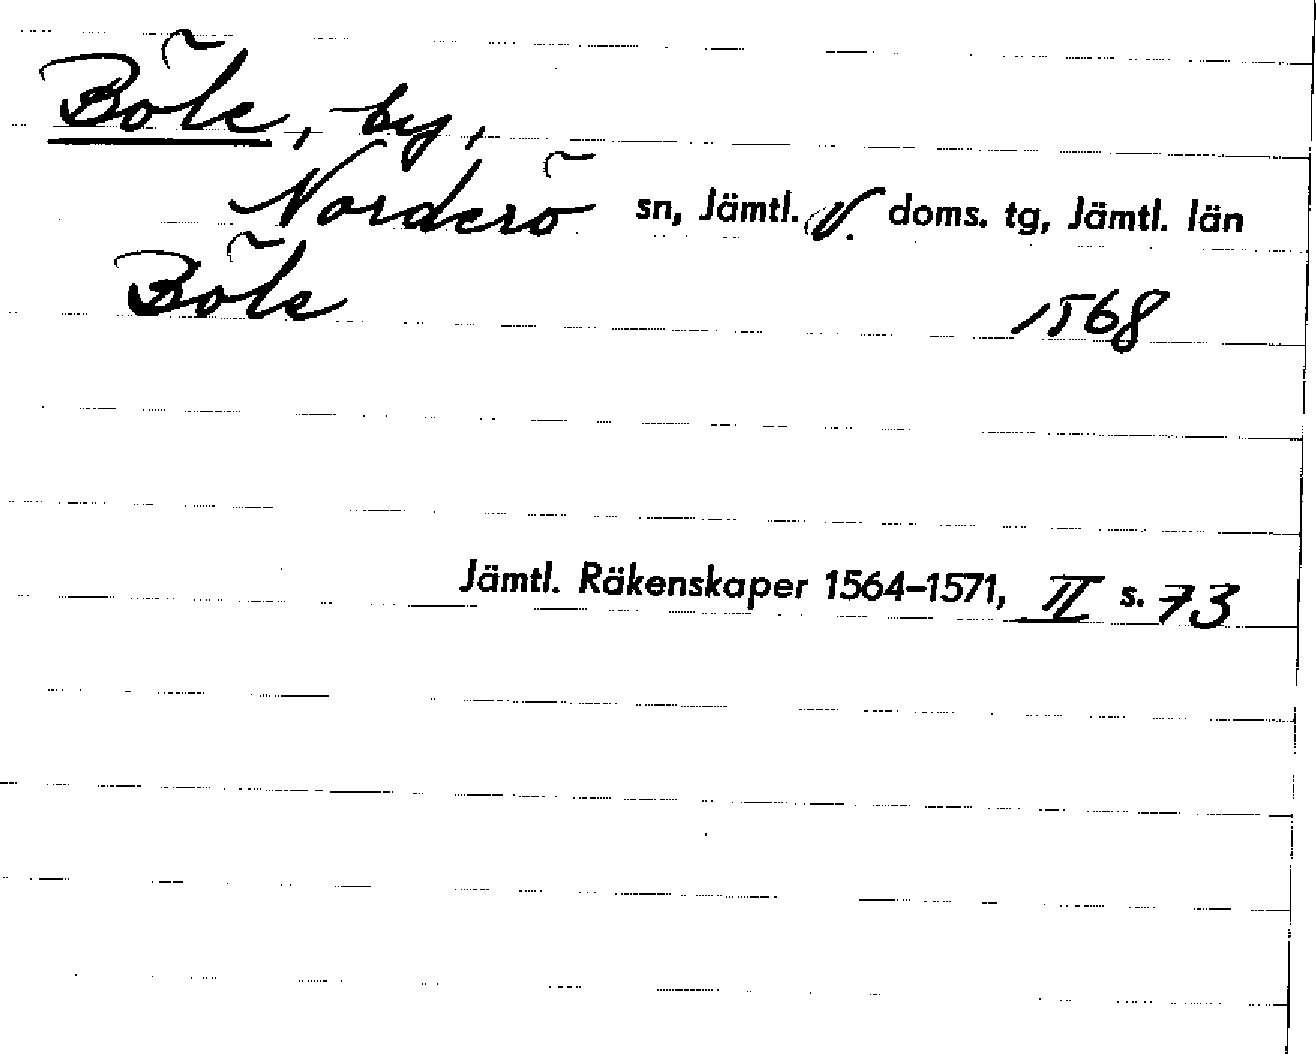 Böle, by,
Norderö sn, Jämtl. V. doms. tg, Jämtl. län
Böle 1568
Jämtl. Räkenskaper 1564–1571, II s. 73